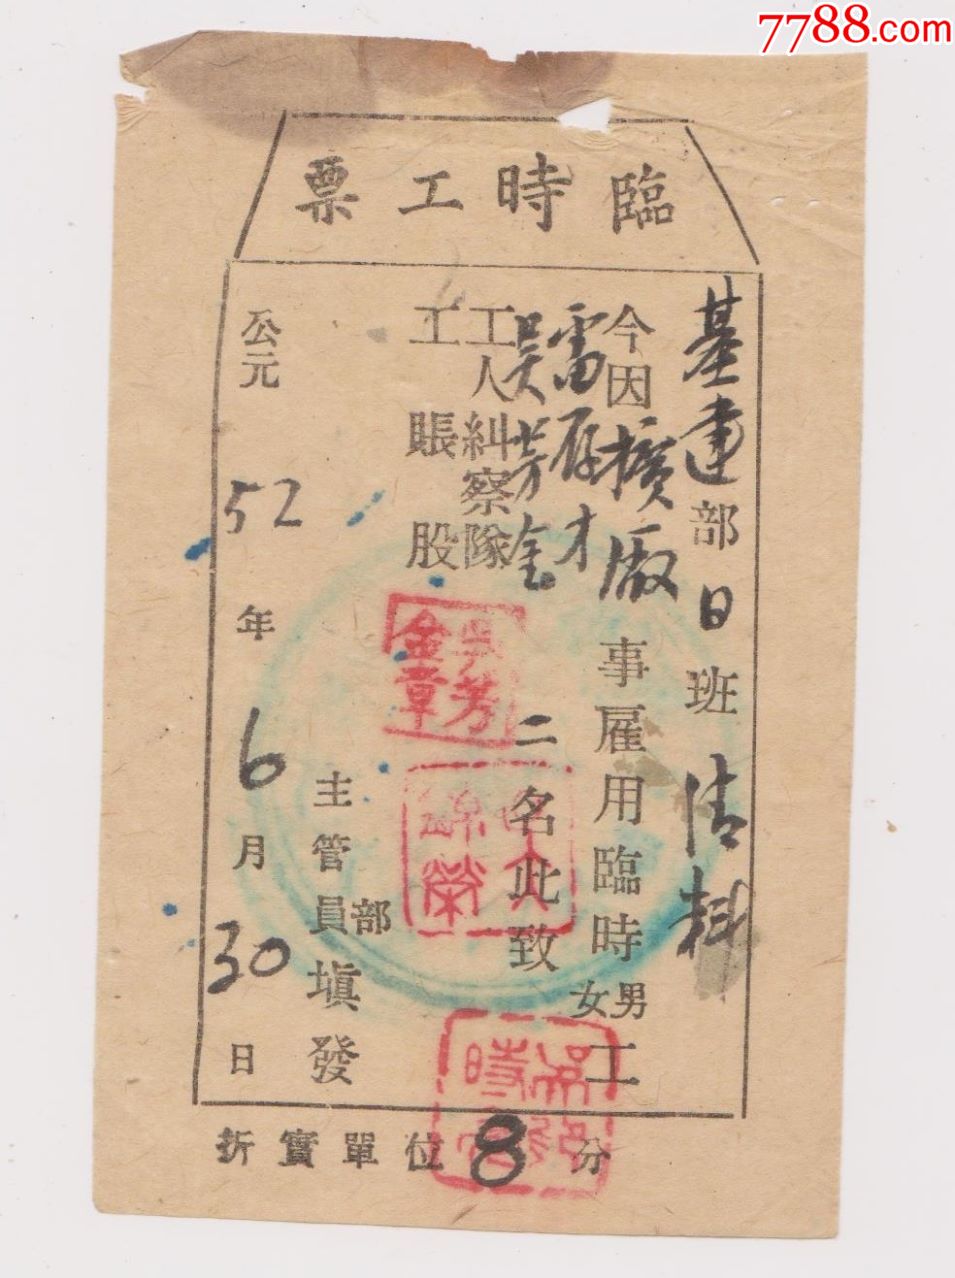 7788.com
臨時工票
基建部日班清料
今因擴廠事雇用臨時男女工
雷存才
吳芳金二名此致
工人糾察隊
工賬股
主管部員填發
公元52年6月30日
折實單位8分
吳芳金章
錦榮